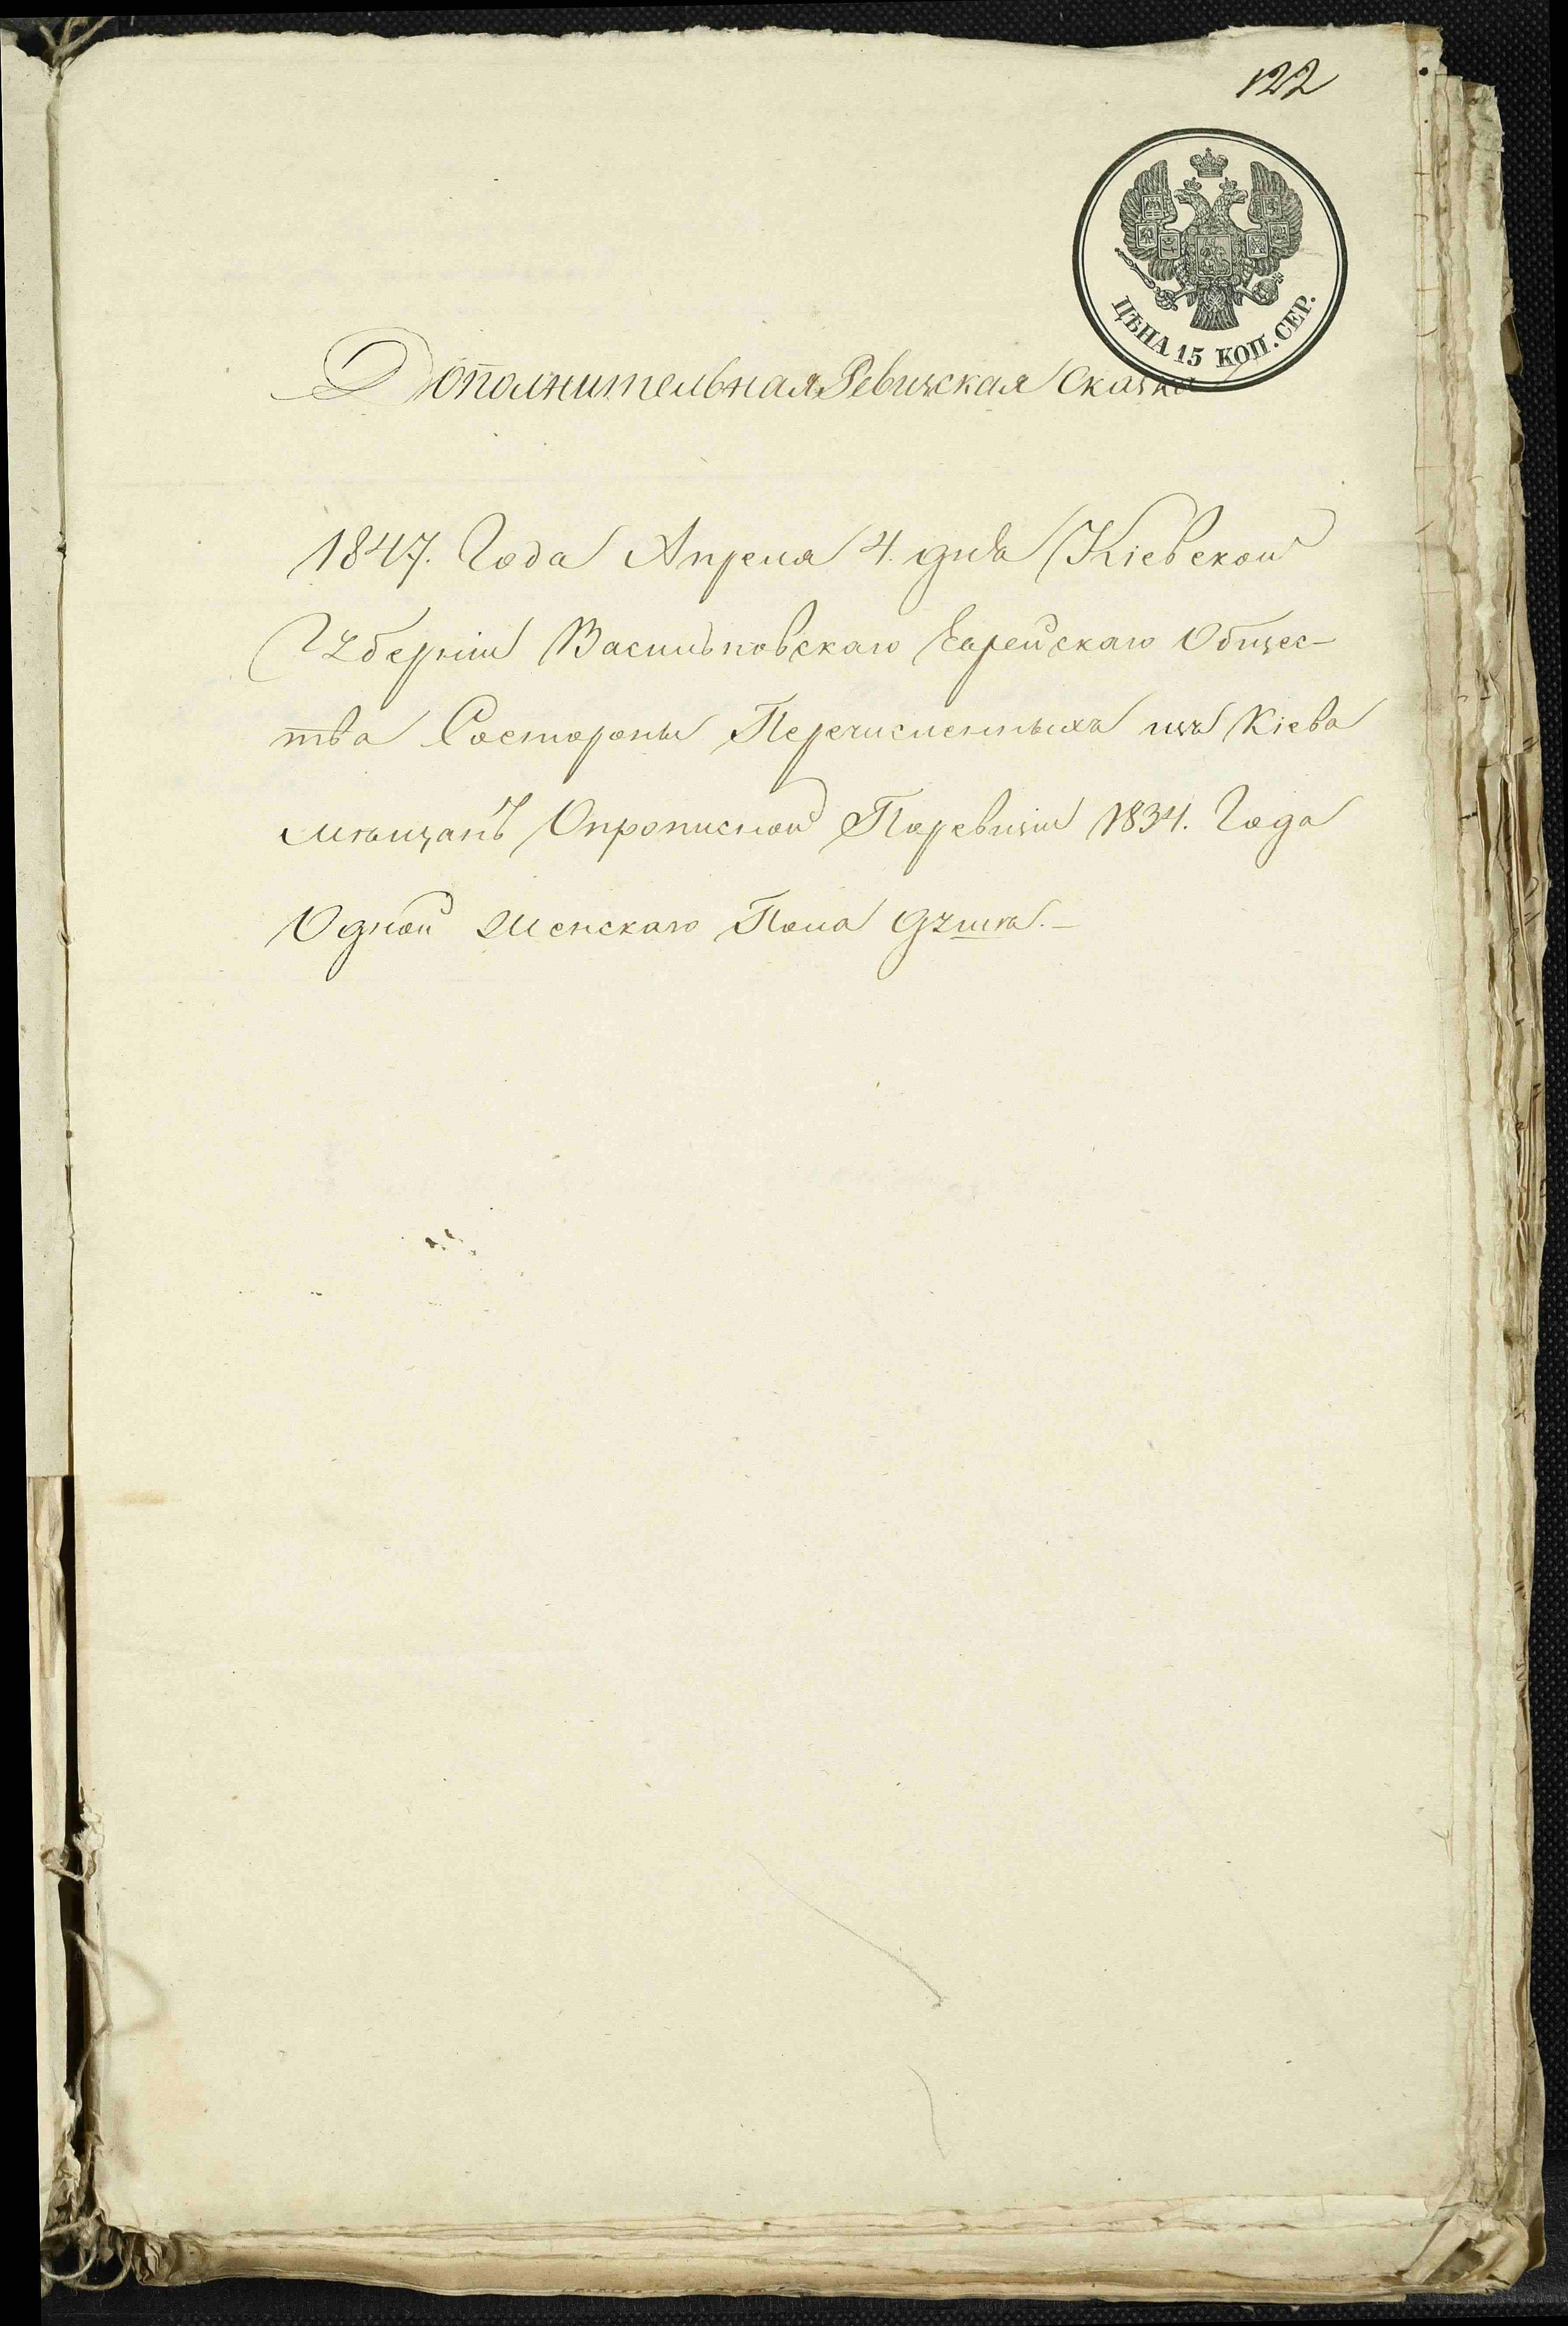 122
ЦѢНА 15 КОП. СЕР.
Дополнительная Ревизская Сказка
1847. Года Апреля 4. дня Кіевской
Губерніи Васильковскаго Еврейскаго Общес-
тва Состороны Перечисленныхъ изъ Кіева
мѣщанъ Опрописной Поревизіи 1834. Года
Одной Женскаго Пола душѣ.–